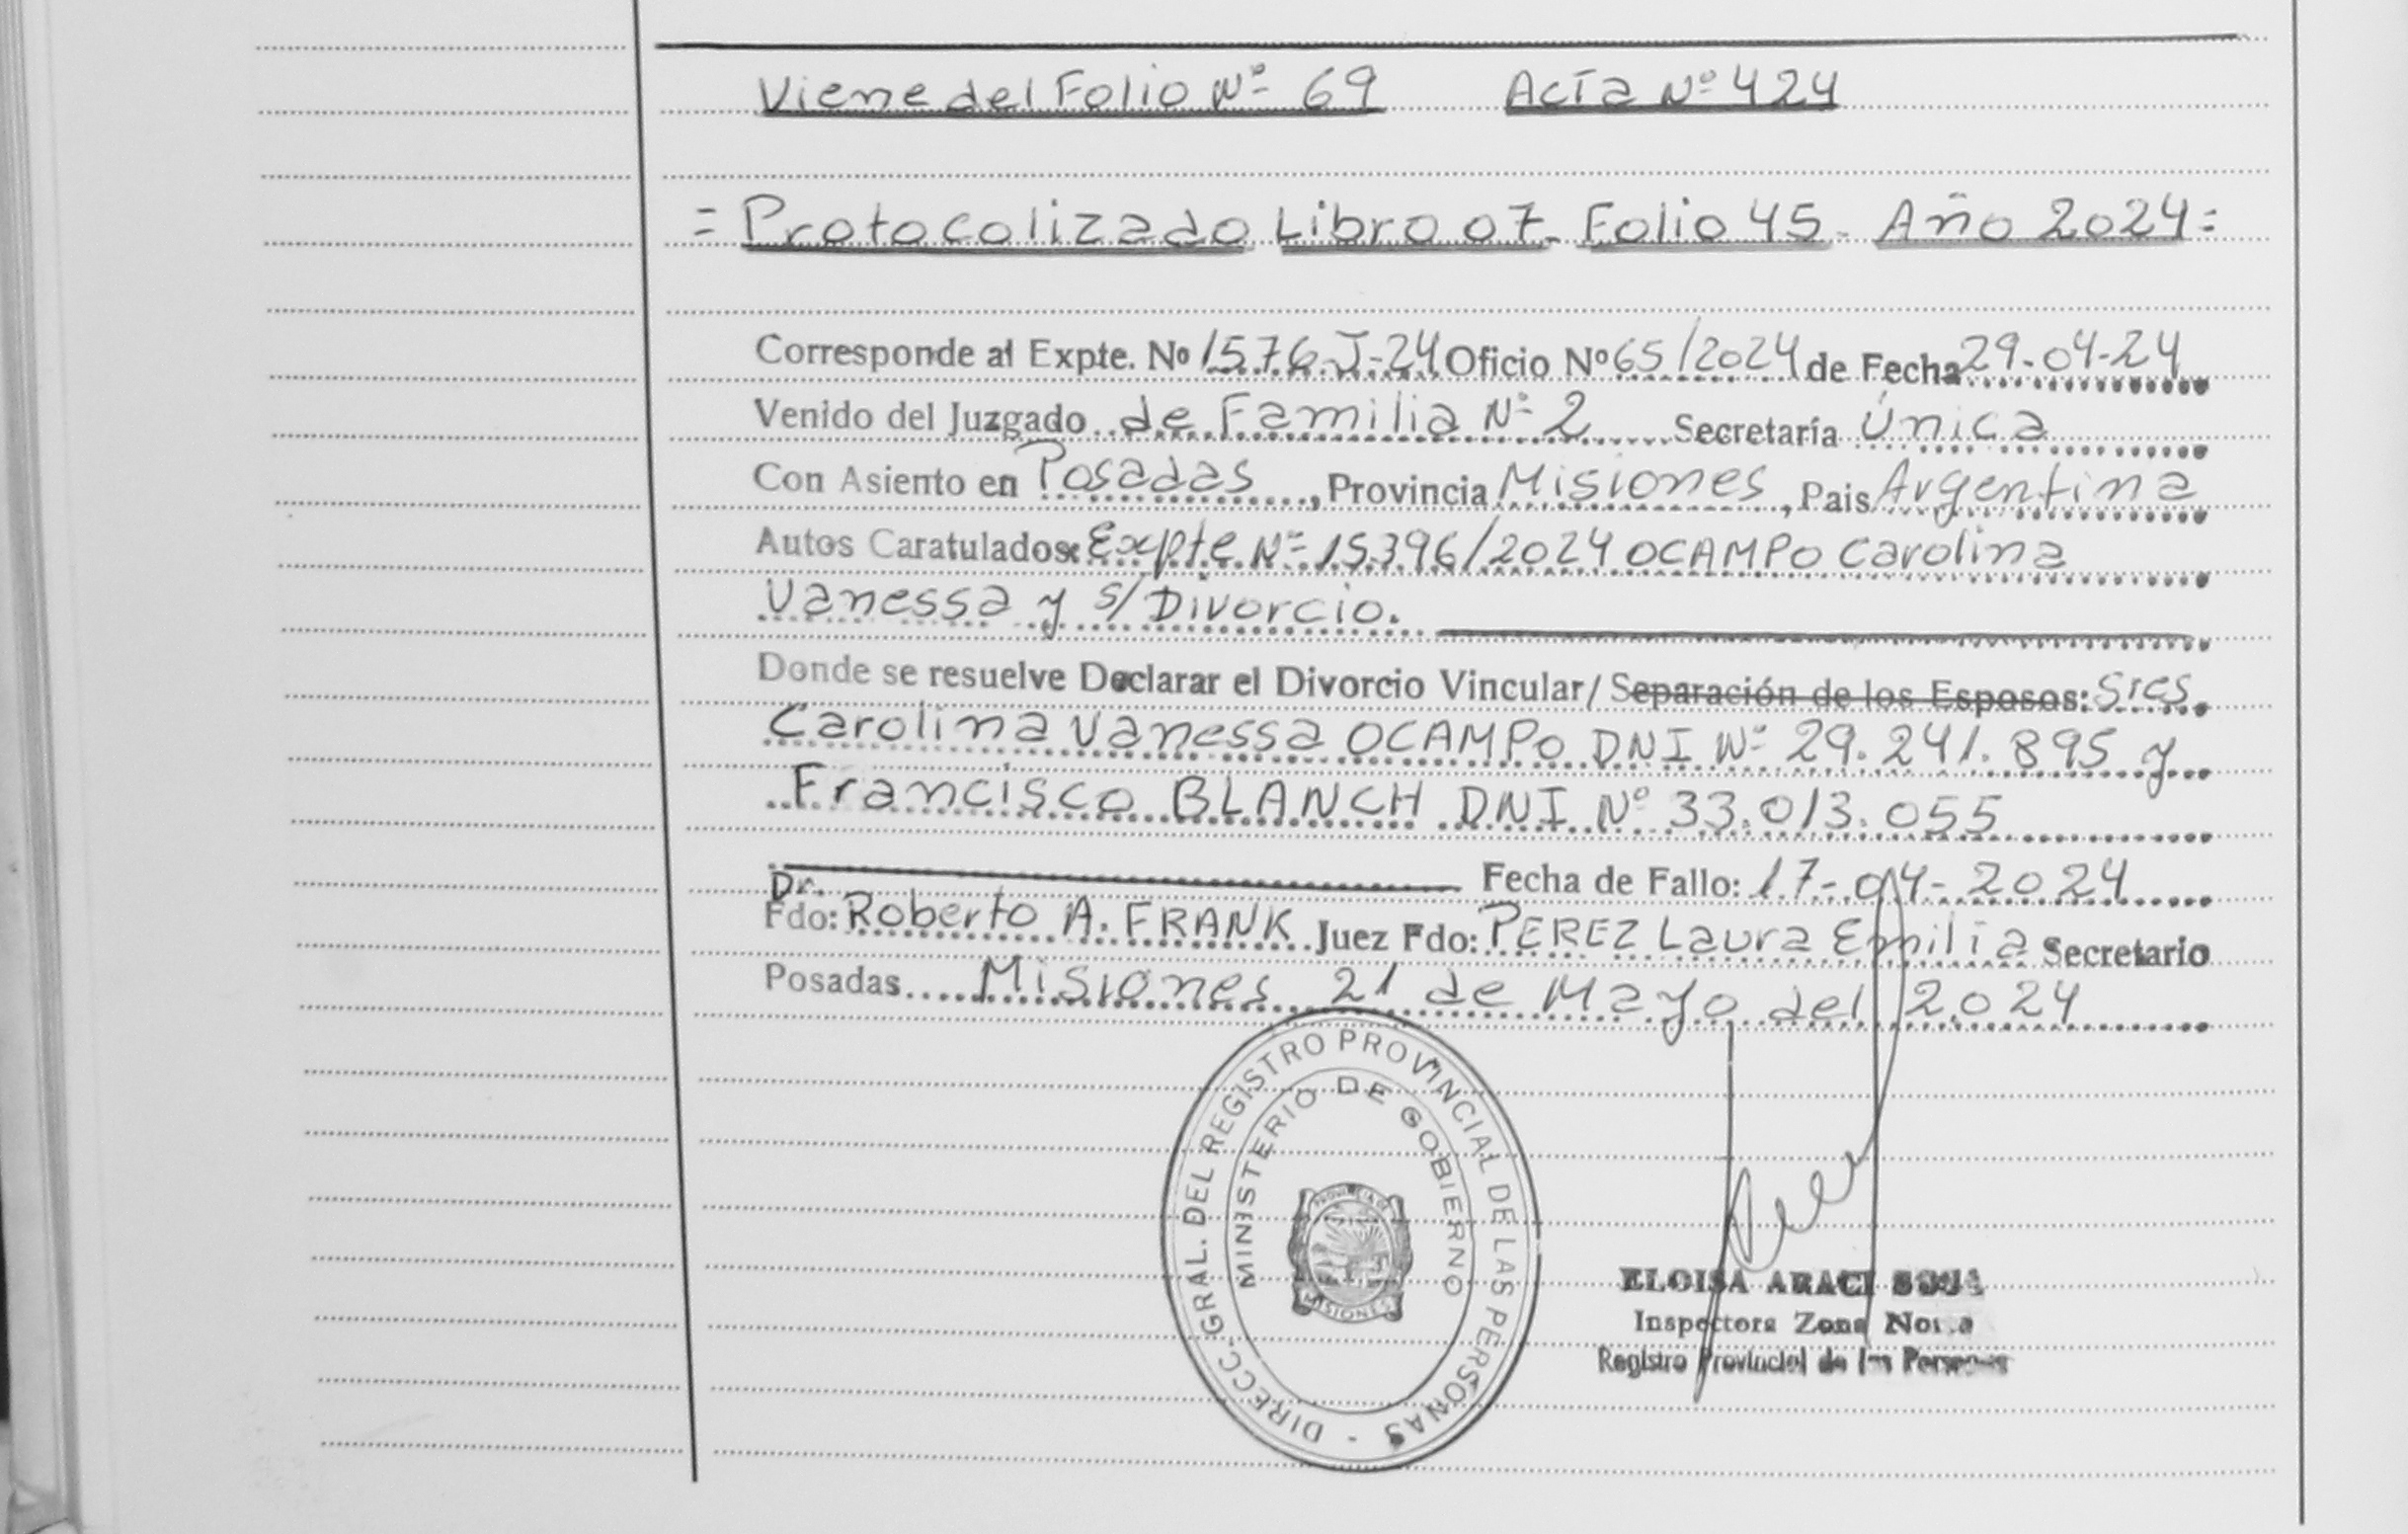 Viene del Folio Nº 69 Acta Nº 424
= Protocolizado Libro 07- Folio 45- Año 2024=
Corresponde al Expte. Nº 1576-J-24 Oficio Nº 65/2024 de Fecha 29-04-24
Venido del Juzgado de Familia Nº 2 Secretaría Única
Con Asiento en Posadas, Provincia Misiones, Pais Argentina
Autos Caratulados: Expte Nº 15396/2024 OCAMPO Carolina
Vanessa y s/ Divorcio.
Donde se resuelve Declarar el Divorcio Vincular/ Separación de los Esposos: Sres.
Carolina Vanessa OCAMPO DNI Nº 29.241.895 y
Francisco BLANCH DNI Nº 33.013.055
Fecha de Fallo: 17-04-2024
Dr.
Fdo: Roberto A. FRANK Juez Fdo: PEREZ Laura Emilia Secretario
Posadas Misiones 21 de Mayo del 2.024
DIRECC. GRAL. DEL REGISTRO PROVINCIAL DE LAS PERSONAS -
MINISTERIO DE GOBIERNO
PROVINCIA DE
MISIONES
ELOISA ARACI
Inspectora Zona
Registro Provincial de las Personas